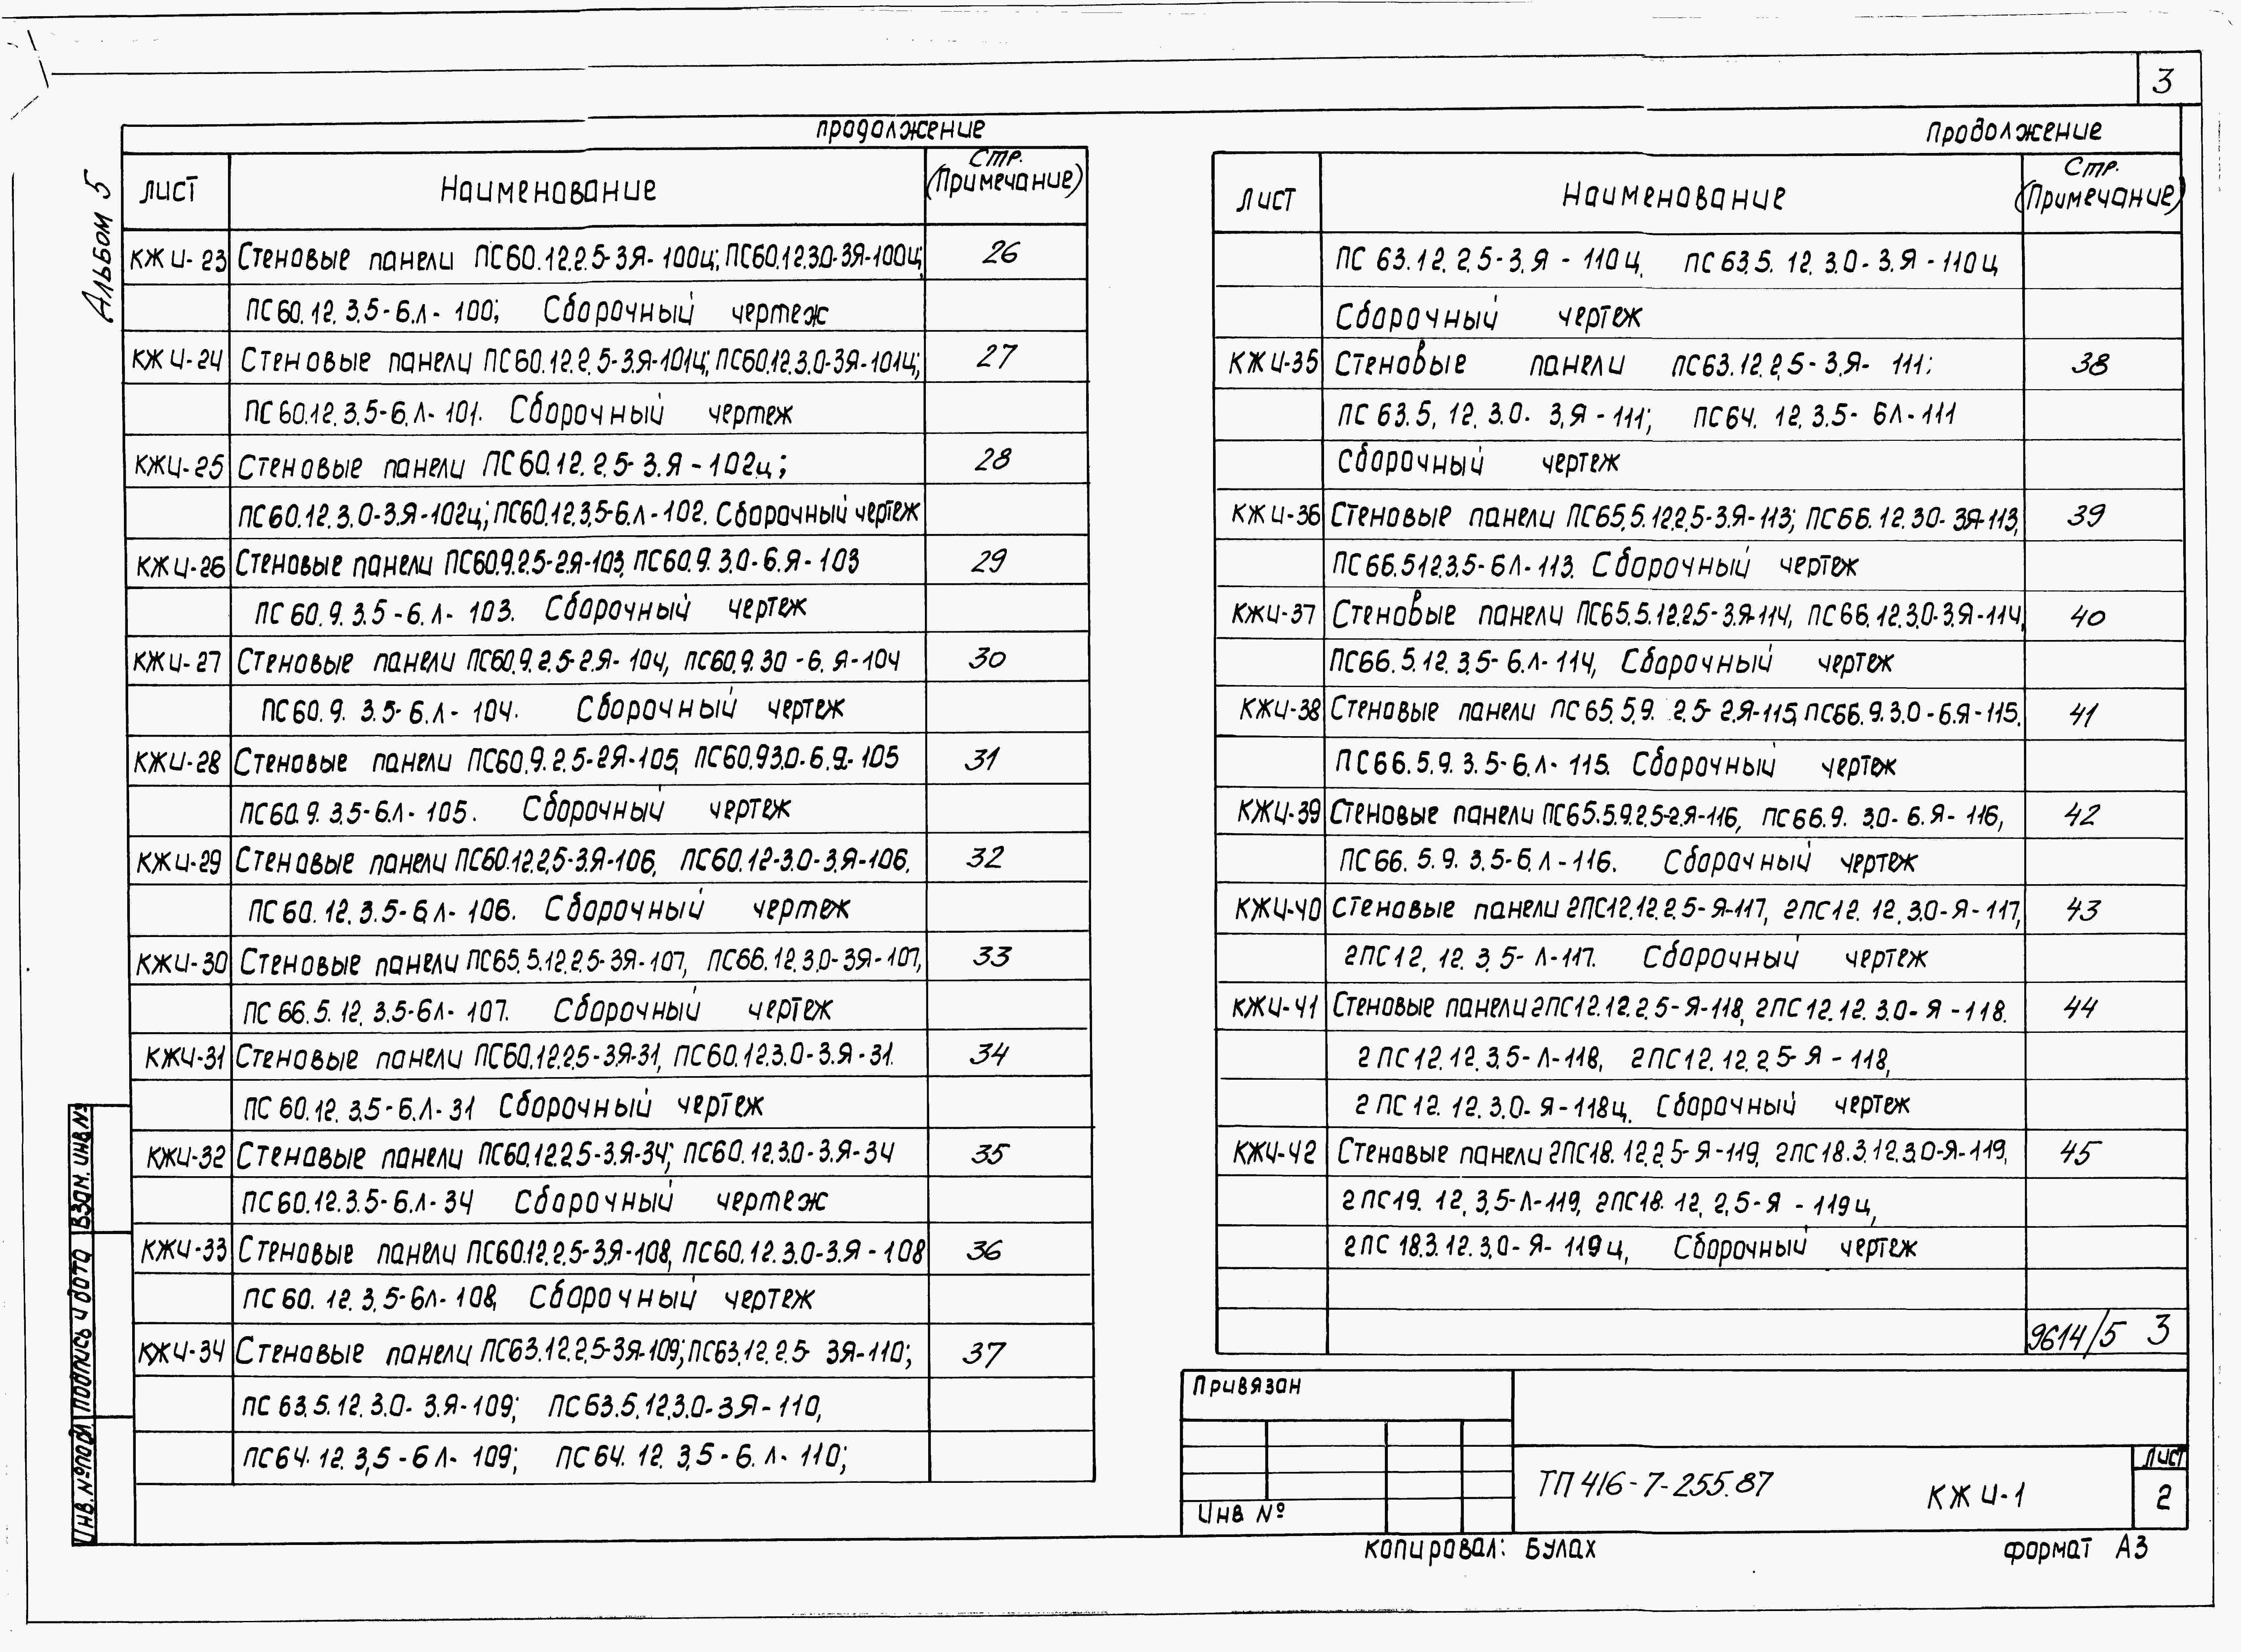 3
Альбом 5
продолжение
лист Наименование Стр. (Примечание)
КЖИ-23 Стеновые панели ПС60.12.2.5-3Я-100ц; ПС60.12.3.0-3Я-100ц; 26
ПС60.12.3.5-6.Л-100; Сборочный чертеж
КЖИ-24 Стеновые панели ПС60.12.2.5-3.Я-101ц; ПС60.12.3.0-3Я-101ц; 27
ПС60.12.3.5-6.Л-101. Сборочный чертеж
КЖИ-25 Стеновые панели ПС60.12.2.5-3.Я-102ц; 28
ПС60.12.3.0-3.Я-102ц; ПС60.12.3,5-6.Л-102. Сборочный чертеж
КЖИ-26 Стеновые панели ПС60.9.2.5-2.Я-103, ПС60.9.3.0-6.Я-103 29
ПС60.9.3.5-6.Л-103. Сборочный чертеж
КЖИ-27 Стеновые панели ПС60.9.2.5-2.Я-104, ПС60.9.30-6.Я-104 30
ПС60.9.3.5-6.Л-104. Сборочный чертеж
КЖИ-28 Стеновые панели ПС60.9.2.5-2Я-105, ПС60.93.0-6.Я-105 31
ПС60.9.3.5-6.Л-105. Сборочный чертеж
КЖИ-29 Стеновые панели ПС60.12.2,5-3.Я-106, ПС60.12-3.0-3.Я-106. 32
ПС60.12.3.5-6Л-106. Сборочный чертеж
КЖИ-30 Стеновые панели ПС65.5.12.2.5-3Я-107, ПС66.12.3,0-3Я-107, 33
ПС66.5.12.3.5-6Л-107. Сборочный чертеж
КЖИ-31 Стеновые панели ПС60.12.2.5-3.Я-31, ПС60.12.3.0-3.Я-31. 34
ПС60.12.3,5-6.Л-31 Сборочный чертеж
КЖИ-32 Стеновые панели ПС60.12.2.5-3.Я-34; ПС60.12.3.0-3.Я-34 35
ПС60.12.3.5-6.Л-34 Сборочный чертеж
КЖИ-33 Стеновые панели ПС60.12.2.5-3.Я-108, ПС60.12.3.0-3.Я-108 36
ПС60.12.3.5-6Л-108, Сборочный чертеж
КЖИ-34 Стеновые панели ПС63.12.2,5-3Я-109; ПС63.12.2.5-3Я-110; 37
ПС63.5.12.3.0-3.Я-109; ПС63.5.12.3.0-3Я-110,
ПС64.12.3,5-6Л-109; ПС64.12.3,5-6.Л-110;
продолжение
лист Наименование Стр. (Примечание)
ПС63.12.2,5-3.Я-110ц, ПС63.5.12.3.0-3.Я-110ц
Сборочный чертеж
КЖИ-35 Стеновые панели ПС63.12.2,5-3.Я-111; 38
ПС63.5.12.3.0-3.Я-111; ПС64.12.3.5-6Л-111
Сборочный чертеж
КЖИ-36 Стеновые панели ПС65.5.12.2.5-3.Я-113; ПС66.12.30-3Я-113, 39
ПС66.512.3,5-6Л-113. Сборочный чертеж
КЖИ-37 Стеновые панели ПС65.5.12.2.5-3.Я-114, ПС66.12.3.0-3.Я-114, 40
ПС66.5.12.3.5-6.Л-114, Сборочный чертеж
КЖИ-38 Стеновые панели ПС65.5.9.2.5-2.Я-115, ПС66.9.3.0-6.Я-115. 41
ПС66.5.9.3.5-6.Л-115. Сборочный чертеж
КЖИ-39 Стеновые панели ПС65.5.9.2.5-2.Я-116, ПС66.9.3.0-6.Я-116, 42
ПС66.5.9.3.5-6.Л-116. Сборочный чертеж
КЖИ-40 Стеновые панели 2ПС12.12.2.5-Я-117, 2ПС12.12.3.0-Я-117, 43
2ПС12.12.3.5-Л-117. Сборочный чертеж
КЖИ-41 Стеновые панели 2ПС12.12.2.5-Я-118, 2ПС12.12.3.0-Я-118. 44
2ПС12.12.3.5-Л-118, 2ПС12.12.2.5-Я-118,
2ПС12.12.3.0-Я-118ц. Сборочный чертеж
КЖИ-42 Стеновые панели 2ПС18.12.2.5-Я-119, 2ПС18.3.12.3.0-Я-119, 45
2ПС19.12.3,5-Л-119, 2ПС18.12.2,5-Я-119ц,
2ПС18.3.12.3,0-Я-119ц, Сборочный чертеж
9614/5 3
Привязан
Инв №
ТП 416-7-255.87 КЖИ-1
Лист
2
Копировал: Булах формат А3
Взам. инв №
Подпись и дата
Инв. №подл.